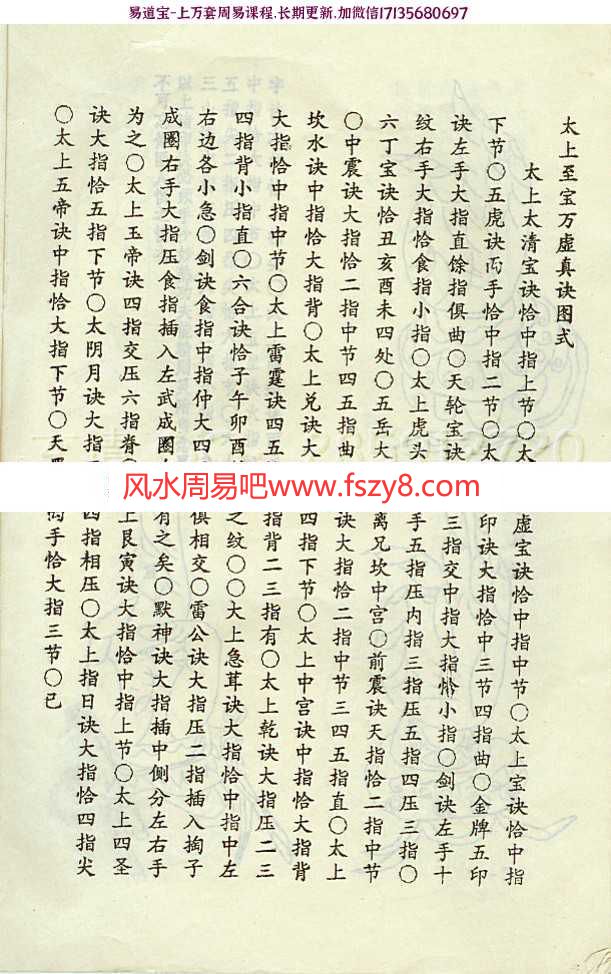 易道宝-上万套周易课程.长期更新.加微信17135680697
太上至宝万虚真诀图式
太上太清宝诀恰中指上节〇太 虚宝诀恰中指中节〇太上宝诀恰中指
下节〇五虎诀两手恰中指二节〇太 印诀大指恰中三节四指曲〇金牌五印
诀左手大指直馀指俱曲〇天轮宝诀 三指交中指大指恰小指〇剑诀左手十
纹右手大指恰食指小指〇太上虎头 手五指压内指三指压五指四压三指〇
六丁宝诀恰丑亥酉未四处〇五岳大 离兄坎中宫〇前震诀天指恰二指中节
〇中震诀大指恰二指中节四五指曲 诀大指恰二指中节三四五指直〇太上
坎水诀中指恰大指背〇太上兑诀大 四指下节〇太上中宫诀中指恰大指背
大指恰中指中节〇太上雷霆诀四五 指背二三指有〇太上乾诀大指压二三
四指背小指直〇六合诀恰子午卯酉 之纹〇〇大上急茸诀大指恰中指中左
右边各小急〇剑诀食指中指仲大四 俱相交〇雷公诀大指压二指插入掏子
成圈右手大指压食指插入左武成圈 有之矣〇默神诀大指插中侧分左右手
为之〇太上玉帝诀四指交压六指脊 上艮寅诀大指恰中指上节〇太上四圣
诀大指恰五指下节〇太阴月诀大指 四指相压〇太上指日诀大指恰四指尖
〇太上五帝诀中指恰大指下节〇天 两手恰大指三节〇已
风水周易吧www.fszy8.com